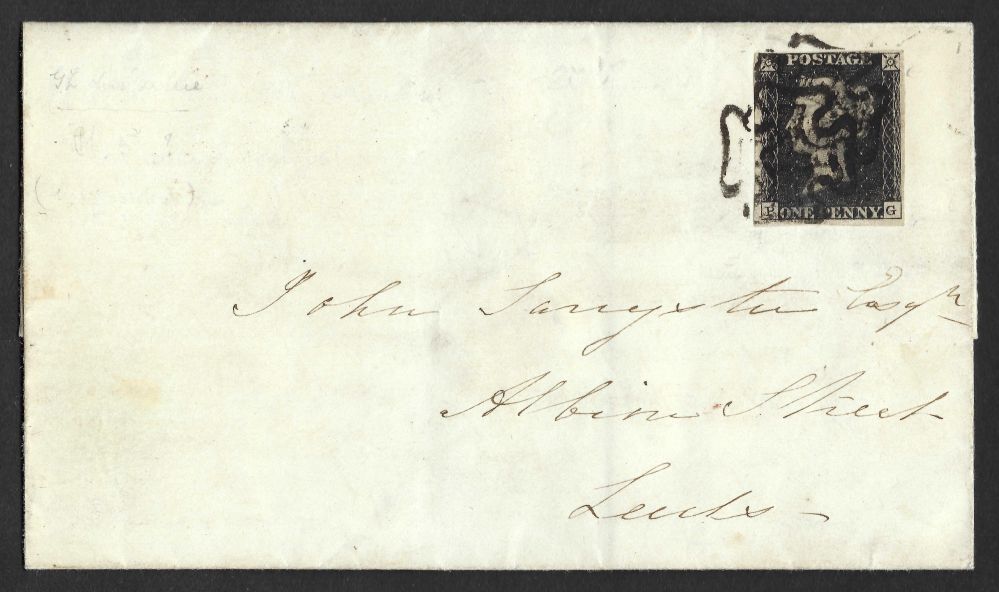 POSTAGE
ONE PENNY
G
John Sangster Esqr
Albion Street
Leeds